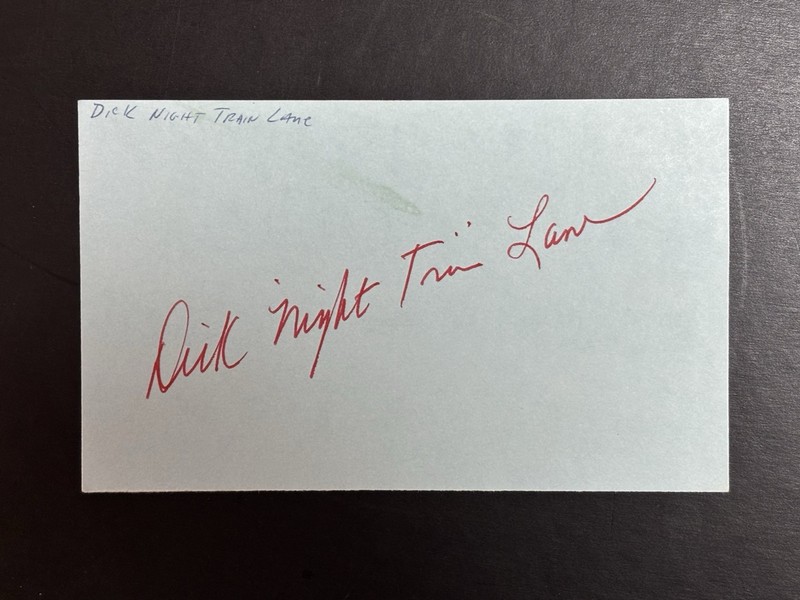 Dick Night Train Lane
Dick "Night Train" Lane